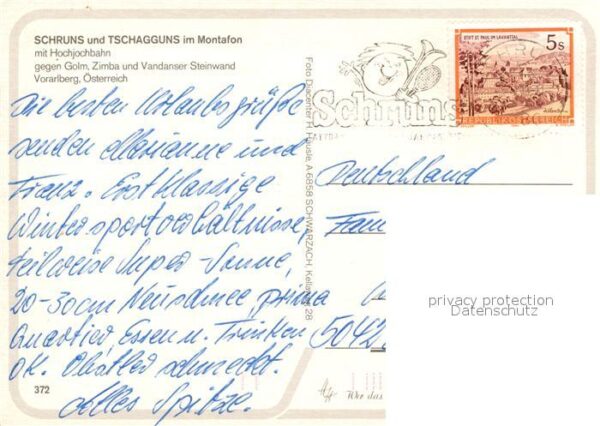 SCHRUNS und TSCHAGGUNS im Montafon
mit Hochjochbahn
gegen Golm, Zimba und Vandanser Steinwand
Vorarlberg, Österreich
Die besten Urlaubsgrüße
senden Marianne und
Franz. Erstklassige
Wintersportverhältnisse,
teilweise Super-Sonne,
20-30cm Neuschnee, prima
Quartier, Essen u. Trinken
OK. Obstler schmeckt.
Alles Spitze.
372
Foto Dagenter H. Häusle, A-6858 SCHWARZACH, 28
Schruns
STIFT ST. PAUL IM LAVANTTAL
5s
REPUBLIK ÖSTERREICH
Deutschland
Fam
5042
privacy protection
Datenschutz
Wer das